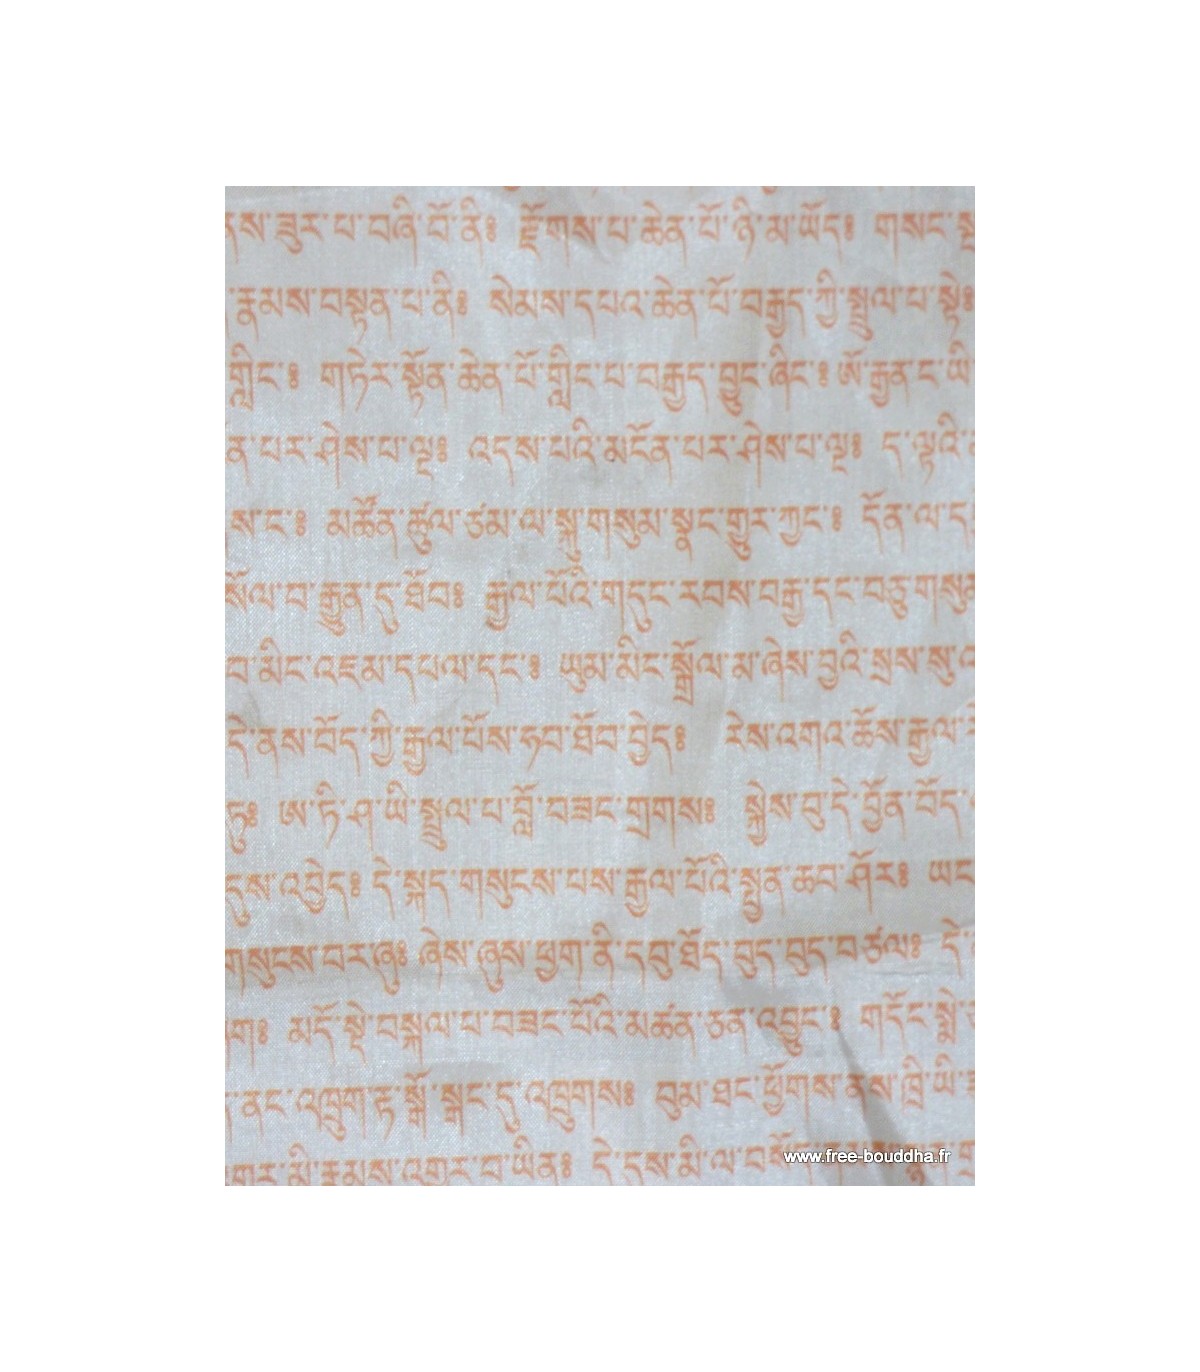 ནས་ཟུར་པ་བཞི་པོ་ནི༔ རྫོགས་པ་ཆེན་པོ་ཉི་མ་ཡོད༔ གསང་
རྣམས་བསྟན་པ་ནི༔ སེམས་དཔའ་ཆེན་པོ་བརྒྱད་ཀྱི་སྤྲུལ་པ་སྟེ༔
གླིང༔ གཏེར་སྟོན་ཆེན་པོ་གླིང་པ་བརྒྱད་བྱུང་ཞིང༔ ཨོ་རྒྱན་ང་ཡི
ན་པར་ཤེས་པ་ལྔ༔ འདས་པའི་མངོན་པར་ཤེས་པ་ལྔ༔ ད་ལྟའི་
ས་ང༔ མཚོན་ཚུལ་ཙམ་ལ་སྐུ་གསུམ་སྣང་གྱུར་ཀྱང༔ དོན་ལ་
སོལ་བ་རྒྱུན་དུ་ཐོབ༔ རྒྱལ་པོའི་གདུང་རབས་བརྒྱ་དང་བཅུ་གསུམ
བ་མིང་འཇམ་དཔལ་དང༔ ཡུམ་མིང་སྒྲོལ་མ་ཞེས་བྱའི་སྲས་སུ་
དེ་ནས་བོད་ཀྱི་རྒྱལ་པོས་ཧབ་ཐོབ་བྱེད༔ རེས་འགའ་ཆོས་རྒྱལ་
ཏུ༔ ཨ་ཏི་ཤ་ཡི་སྤྲུལ་པ་བློ་བཟང་གྲགས༔ སྐྱེས་བུ་དེ་བྱོན་བོད་
དུས་འབྱེད༔ དེ་སྐད་གསུངས་པས་རྒྱལ་པོའི་སྤྱན་ཆབ་ཤོར༔ ཡང
གསུངས་བར་ཞུ༔ ཞེས་ཞུས་ཕྱག་ནི་དབུ་ཐོད་བུད་བུད་བཙལ༔ དེ་
ག༔ མདོ་སྡེ་བསྐལ་པ་བཟང་པོའི་མཚན་ཅན་འབྱུང༔ གདོང་སྨྲེ་
ནང་འཁྲུག་རྟ་སྒོ་སྒང་དུ་འཁྲུགས༔ བུམ་ཐང་ཕྱོགས་ནས་ཁྲི་ཡི་
གར་མི་རྣམས་འགར་བ་ཡིན༔ དེ་དས་མི་ལ་
www.free-bouddha.fr